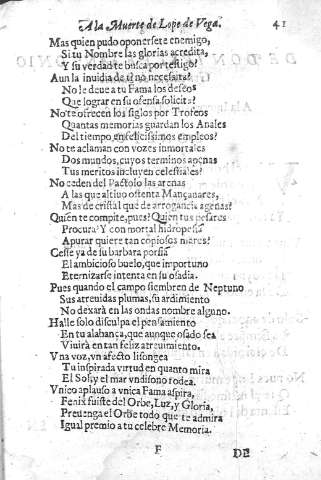 A la Muerte de Lope de Vega. 41
Mas quien pudo oponersete enemigo,
Si tu Nombre las glorias acredita,
Y su verdad te busca por testigo?
Aun la inuidia de ti no necesita?
No le deue a tu Fama los deseos
Que lograr en su ofensa solicita?
No te ofrecen los siglos por Trofeos
Quantas memorias guardan los Anales
Del tiempo, en felicissimos empleos?
No te aclaman con vozes inmortales
Dos mundos, cuyos terminos apenas
Tus meritos incluyen celestiales?
No ceden del Pactolo las arenas
A las que altiuo ostenta Mançanares,
Mas de cristal que de arrogancia agenas?
Quien te compite, pues? Quien tus pesares
Procura? Y con mortal hidropesia
Apurar quiere tan copiosos mares?
Cesse ya de su barbara porfia
El ambicioso buelo, que importuno
Eternizarse intenta en su osadia.
Pues quando el campo siembren de Neptuno
Sus atreuidas plumas, su ardimiento
No dexarà en las ondas nombre alguno.
Halle solo disculpa el pensamiento
En tu alabança, que aunque osado sea
Viuirà en tan feliz atreuimiento.
Vna voz, vn afecto lisongea
Tu inspirada virtud en quanto mira
El Sol, y el mar vndisono rodea.
Vnico aplauso a vnica Fama aspira,
Fenix fuiste del Orbe, Luz, y Gloria,
Preuenga el Orbe todo que te admira
Igual premio a tu celebre Memoria.
F DE